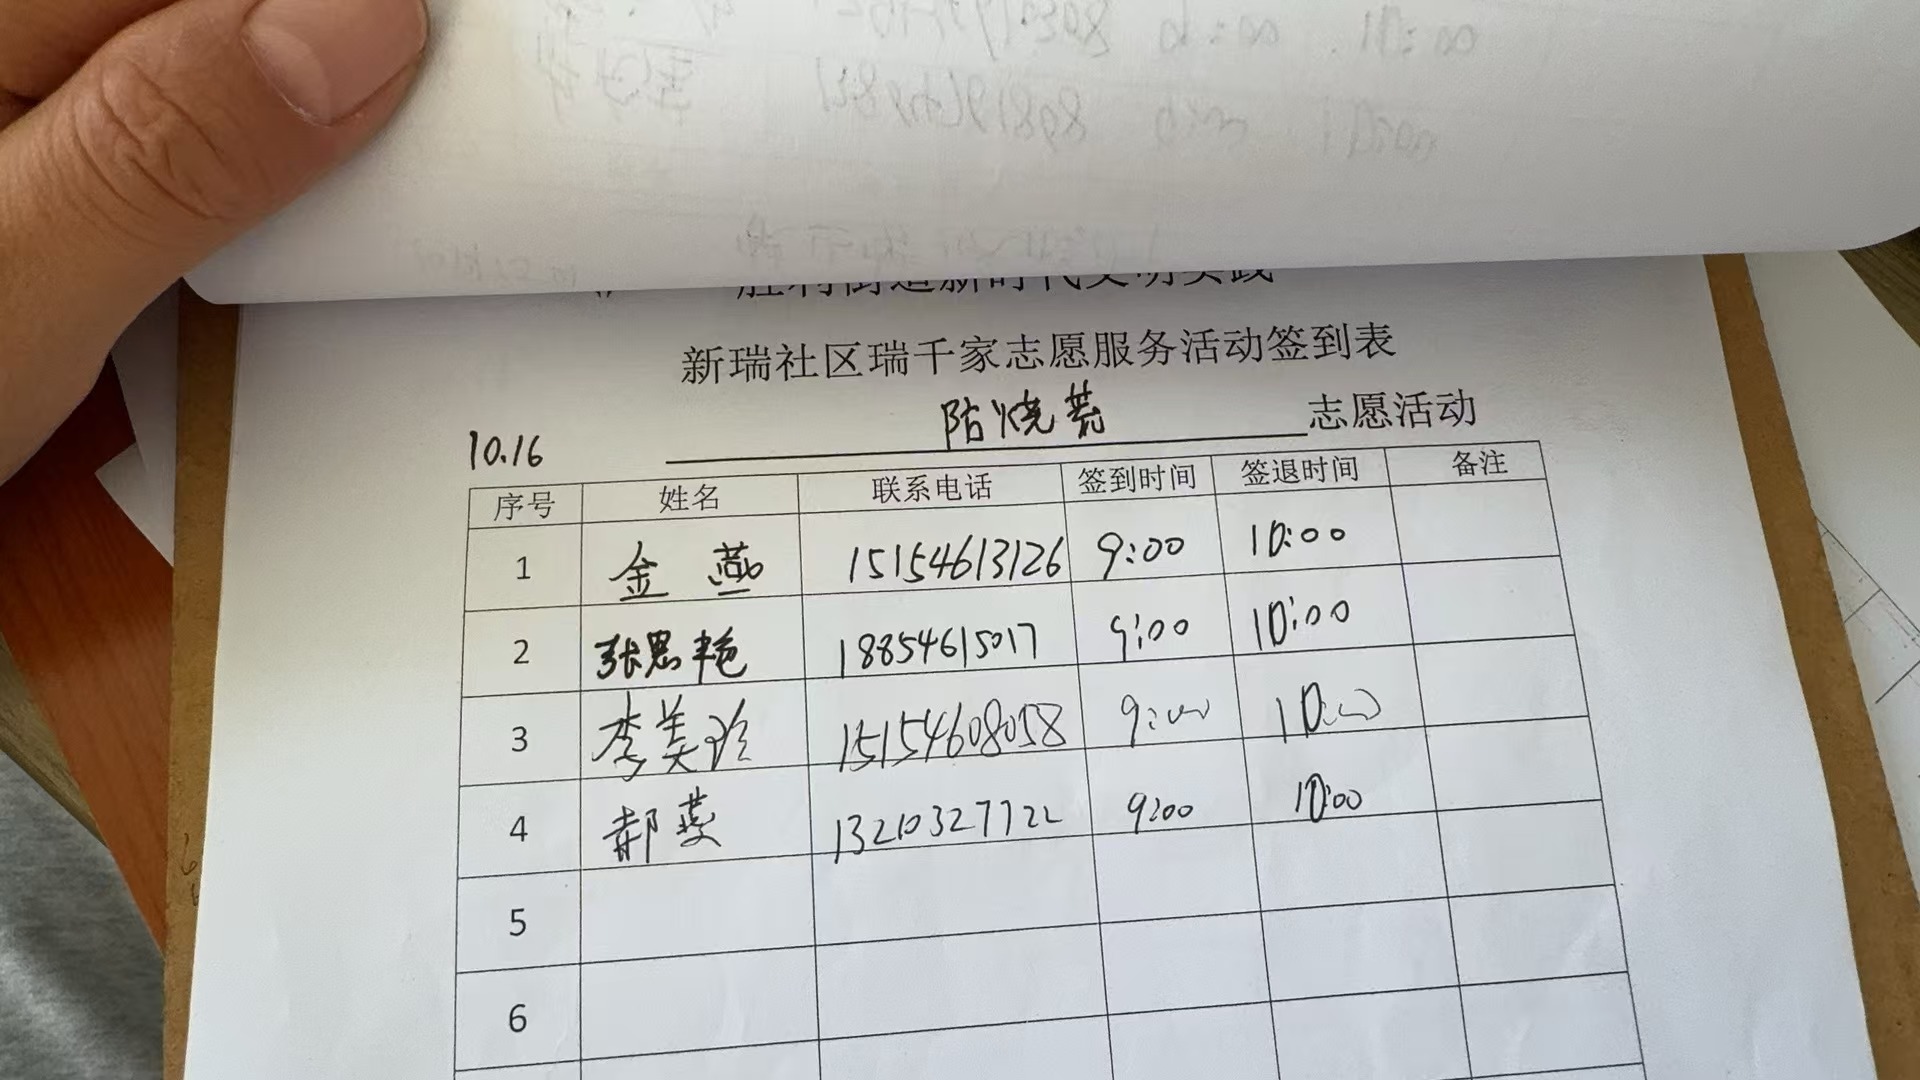 胜利街道新时代文明实践
新瑞社区瑞千家志愿服务活动签到表
10.16 防烧荒 志愿活动
序号 姓名 联系电话 签到时间 签退时间 备注
1 金燕 15154613126 9:00 10:00
2 张思艳 18854615017 9:00 10:00
3 李美玲 15154608058 9:00 10:00
4 郝蕊 13210327722 9:00 10:00
5
6